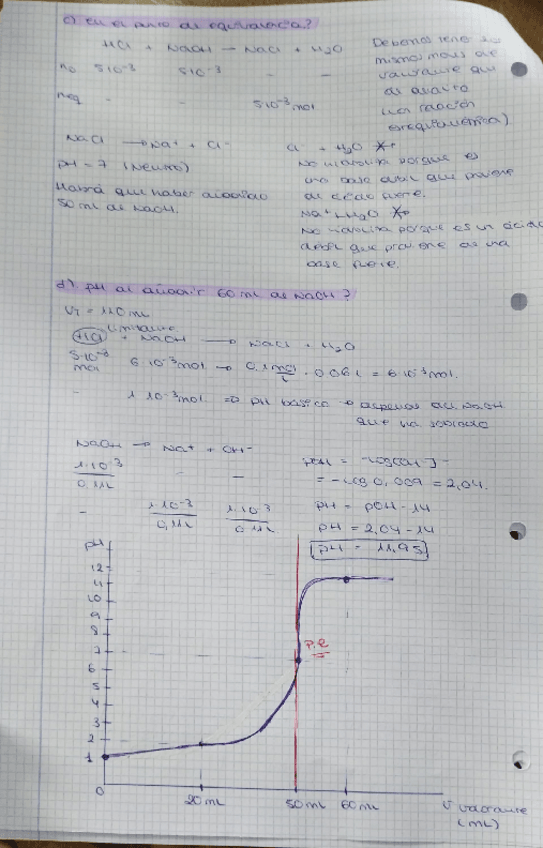 c) en el punto de equivalencia?
HCl + NaOH → NaCl + H2O
no 5·10-3 5·10-3 - -
neq - - 5·10-3 mol
Debemos tener
mismos moles de
valorante que
de
una reacción
estequiométrica)
NaCl → Na+ + Cl-
pH = 7 (Neutro)
Habrá que haber añadido
50 mL de NaOH.
Cl- + H2O
No hidroliza porque es
una base débil que proviene
de ácido fuerte.
Na+ + H2O
No hidroliza porque es un ácido
débil que proviene de una
base fuerte.
d). pH al añadir 60 mL de NaOH?
VT = 110 mL
Limitante
HCl + NaOH → NaCl + H2O
5·10-3 mol 6·10-3 mol → 0.1 mol/L · 0.06 L = 6·10-3 mol.
- 1·10-3 mol => pH básico → depende del NaOH
que ha sobrado
NaOH → Na+ + OH-
1·10-3/0,11L - -
- 1·10-3/0,11L 1·10-3/0,11L
pOH = -log[OH-]
= -log 0,009 = 2,04.
pH = pOH - 14
pH = 2,04 - 14
pH = 11,95
pH
12
11
10
9
8
7
6
5
4
3
2
1
0
P.e
20 mL 50 mL 60 mL
V valorante
(mL)